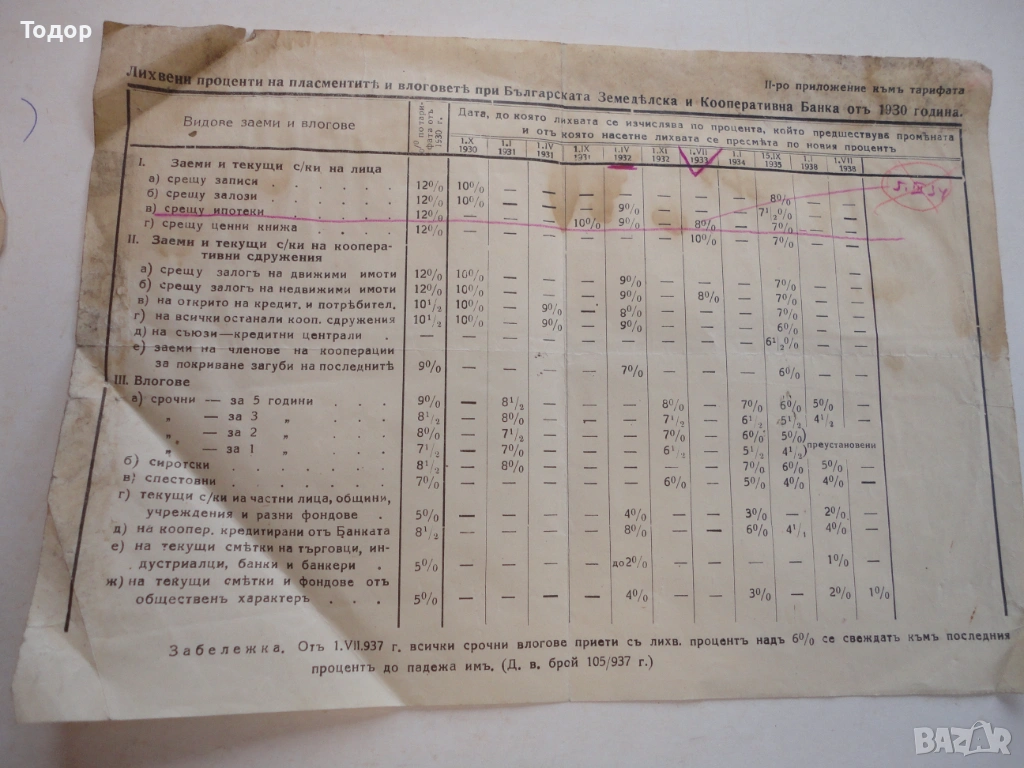 Тодор
II-ро приложение къмъ тарифата
Лихвени проценти на пласментитѣ и влоговетѣ при Българската Земедѣлска и Кооперативна Банка отъ 1930 година.
Видове заеми и влогове
% по тарифата отъ 1930 г.
Дата, до която лихвата се изчислява по процента, който предшествува промѣната
и отъ която насетне лихвата се пресмѣта по новия процентъ
1.X 1930 1.I 1931 1.IV 1931 1.IX 1931 1.IV 1932 1.XI 1932 1.VII 1933 1.I 1934 15.IX 1935 1.I 1938 1.VII 1938
I. Заеми и текущи с/ки на лица
а) срещу записи 12% 10% — — — — — — — 8% — —
б) срещу залози 12% 10% — — — 9% — — — 7½% — —
в) срещу ипотеки 12% — — — 10% 9% — 8% — 7% — —
г) срещу ценни книжа 12% — — — — — — 10% — 7% — —
II. Заеми и текущи с/ки на кооперативни сдружения
а) срещу залогъ на движими имоти 12% 10% — — — 9% — — — 7% — —
б) срещу залогъ на недвижими имоти 12% 10% — — — 9% — 8% — 7% — —
в) на открито на кредит. и потрѣбител. 10½ 10% — 9% — 8% — — — 7% — —
г) на всички останали кооп. сдружения 10½ 10% — 9% — 9% — — — 6% — —
д) на съюзи—кредитни централи — — — — — — — — — 6½% — —
е) заеми на членове на кооперации
за покриване загуби на последнитѣ 9% — — — — 7% — — — 6% — —
III. Влогове
а) срочни — за 5 години 9% — 8½ — — — 8% — 7% 6% 5% —
„ — за 3 „ 8½ — 8% — — — 7½ — 6½ 5½ 4½ —
„ — за 2 „ 8% — 7½ — — — 7% — 6% 5% преустановени
„ — за 1 „ 7½ — 7% — — — 6½ — 5½ 4½
б) сиротски 8½ — 8% — — — — — 7% 6% 5% —
в) спестовни 7% — — — — — 6% — 5% 4% 4% —
г) текущи с/ки на частни лица, общини,
учреждения и разни фондове 5% — — — — 4% — — 3% — 2% —
д) на коопер. кредитирани отъ Банката 8½ — — — — 8% — — 6% 4½ 4% —
е) на текущи смѣтки на търговци, индустриалци, банки и банкери 5% — — — — до 2% — — — — 1% —
ж) на текущи смѣтки и фондове отъ
общественъ характеръ 5% — — — — 4% — — 3% — 2% 1%
Забележка. Отъ 1.VII.937 г. всички срочни влогове приети съ лихв. процентъ надъ 6% се свеждатъ къмъ последния
процентъ до падежа имъ. (Д. в. брой 105/937 г.)
BAZAR